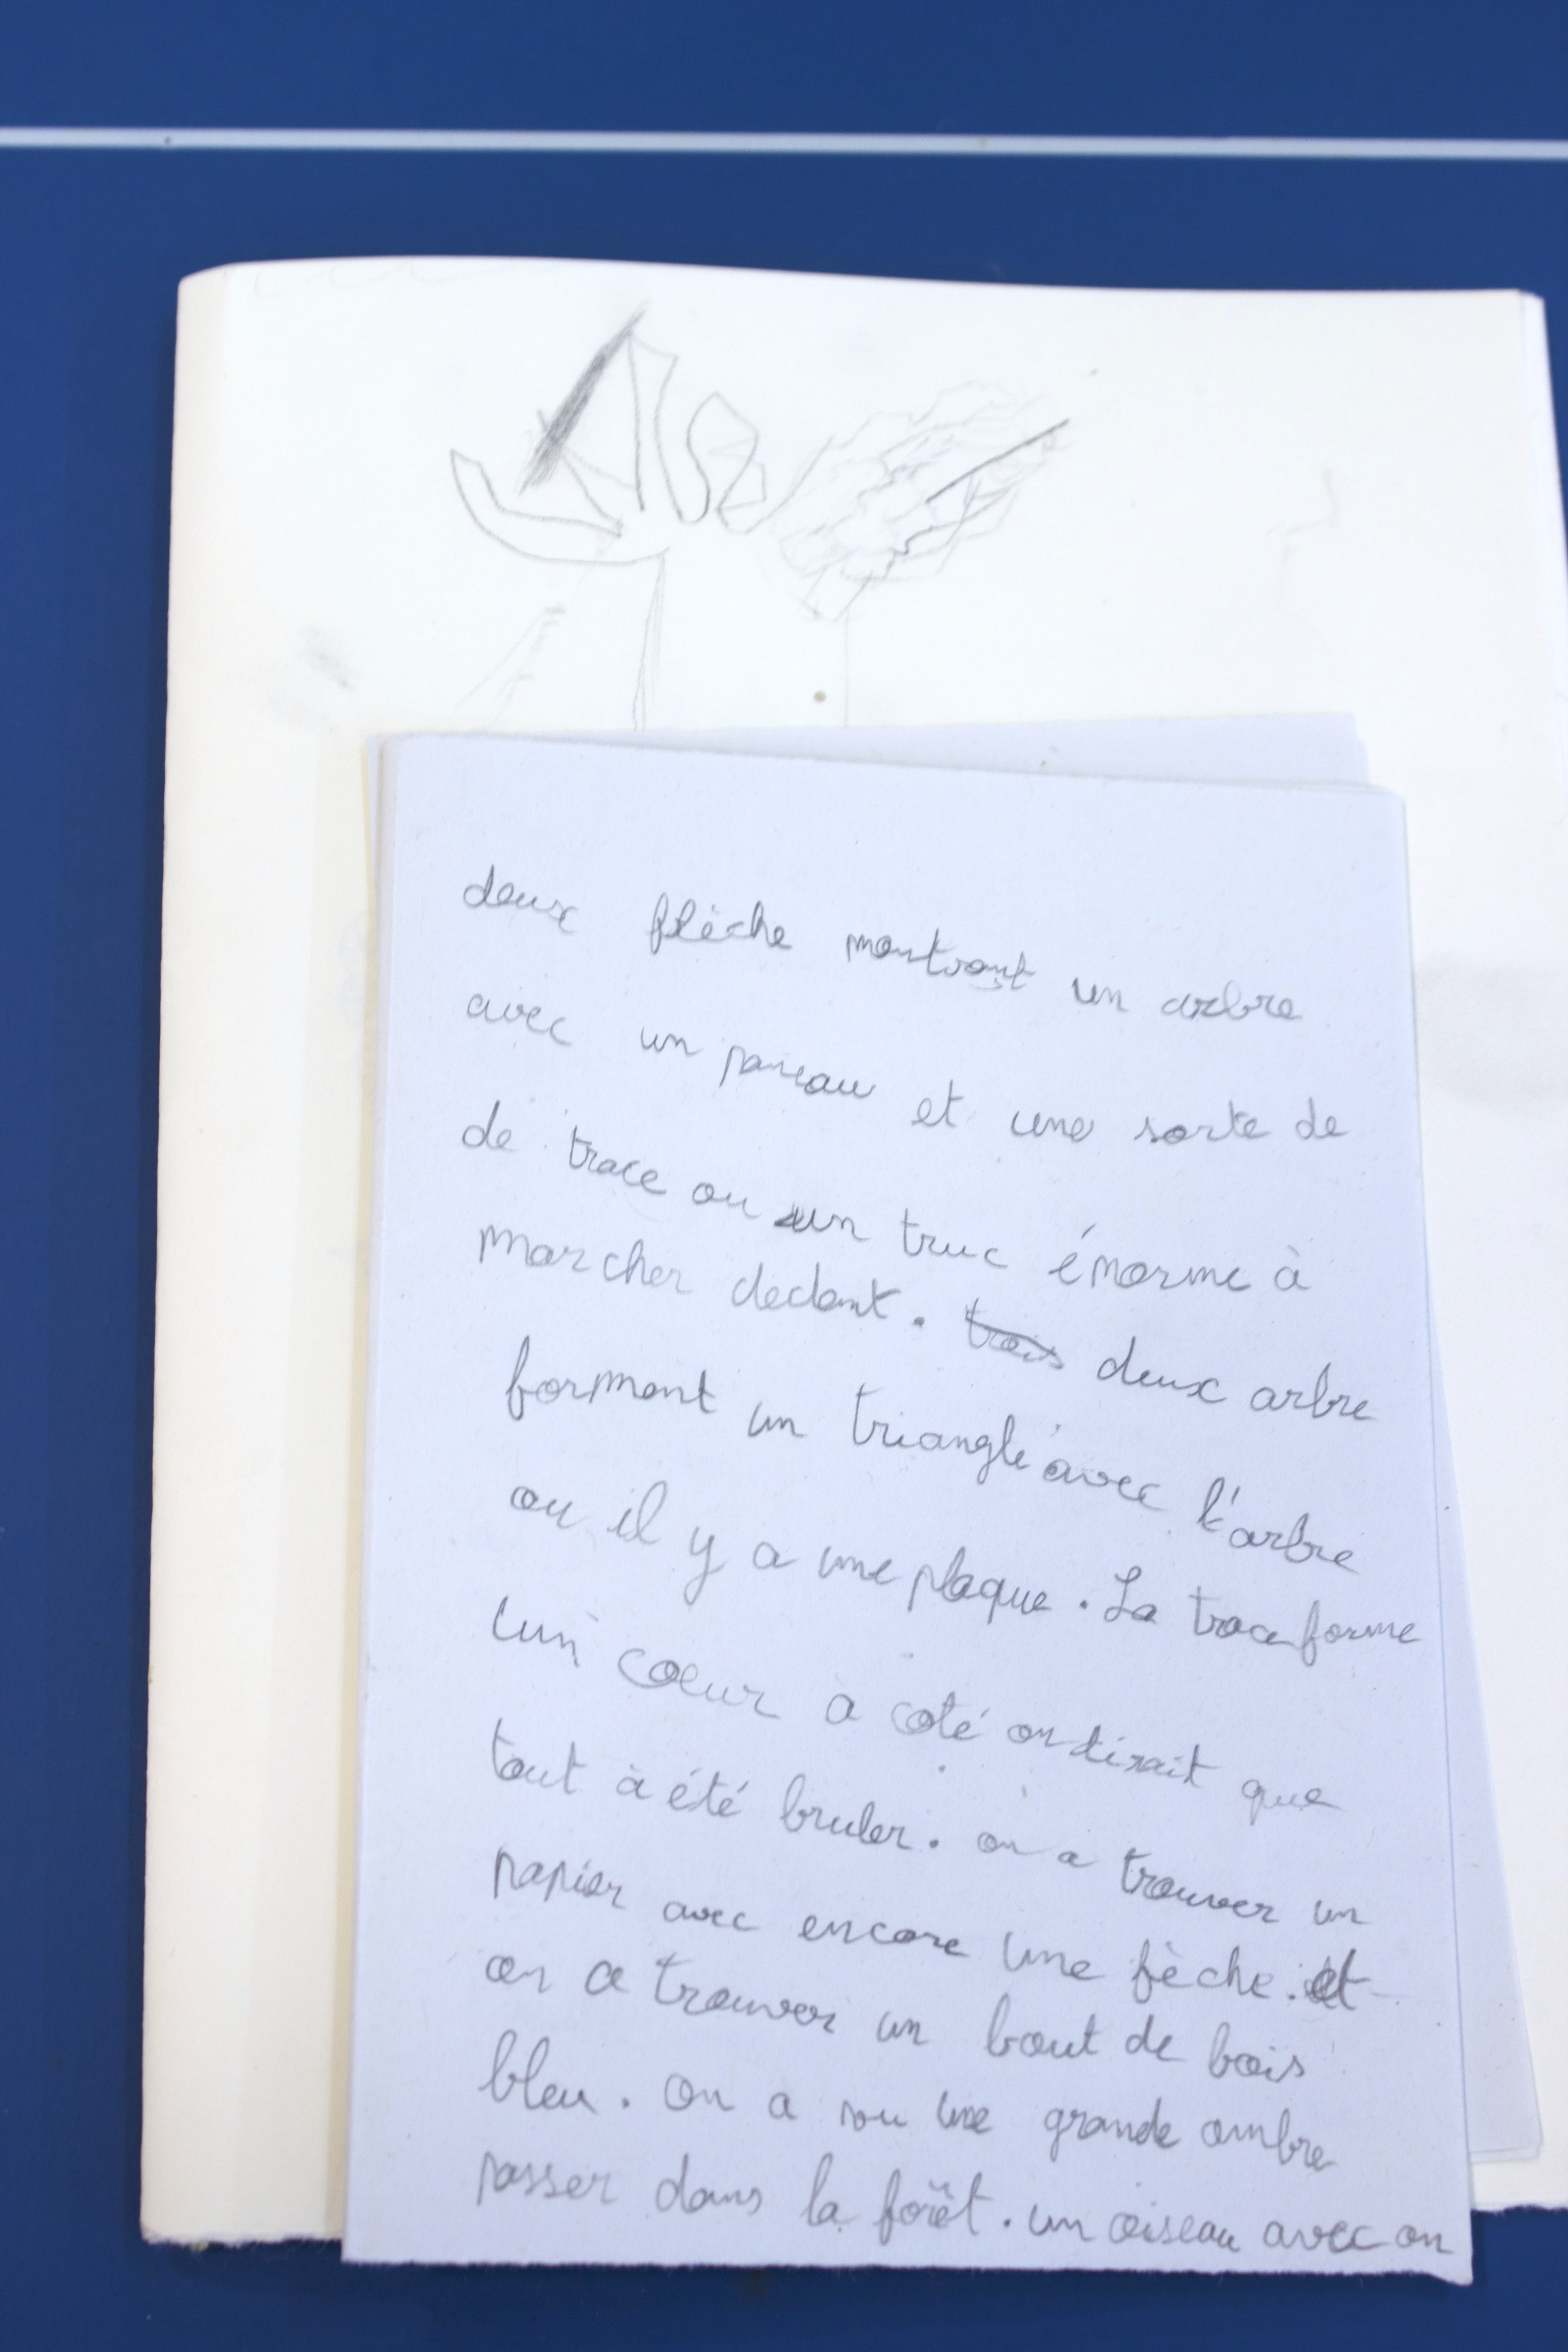 deux flèche montrant un arbre
avec un paneau et une sorte de
de trace ou un truc énorme à
marcher dedant. trois deux arbre
forment un triangle avec l'arbre
ou il y a une plaque. La trace forme
un coeur a coté on dirait que
tout à été bruler. on a trouver un
papier avec encore une fèche. et
on a trouver un bout de bois
bleu. on a vu une grande ombre
passer dans la forêt. un oiseau avec on